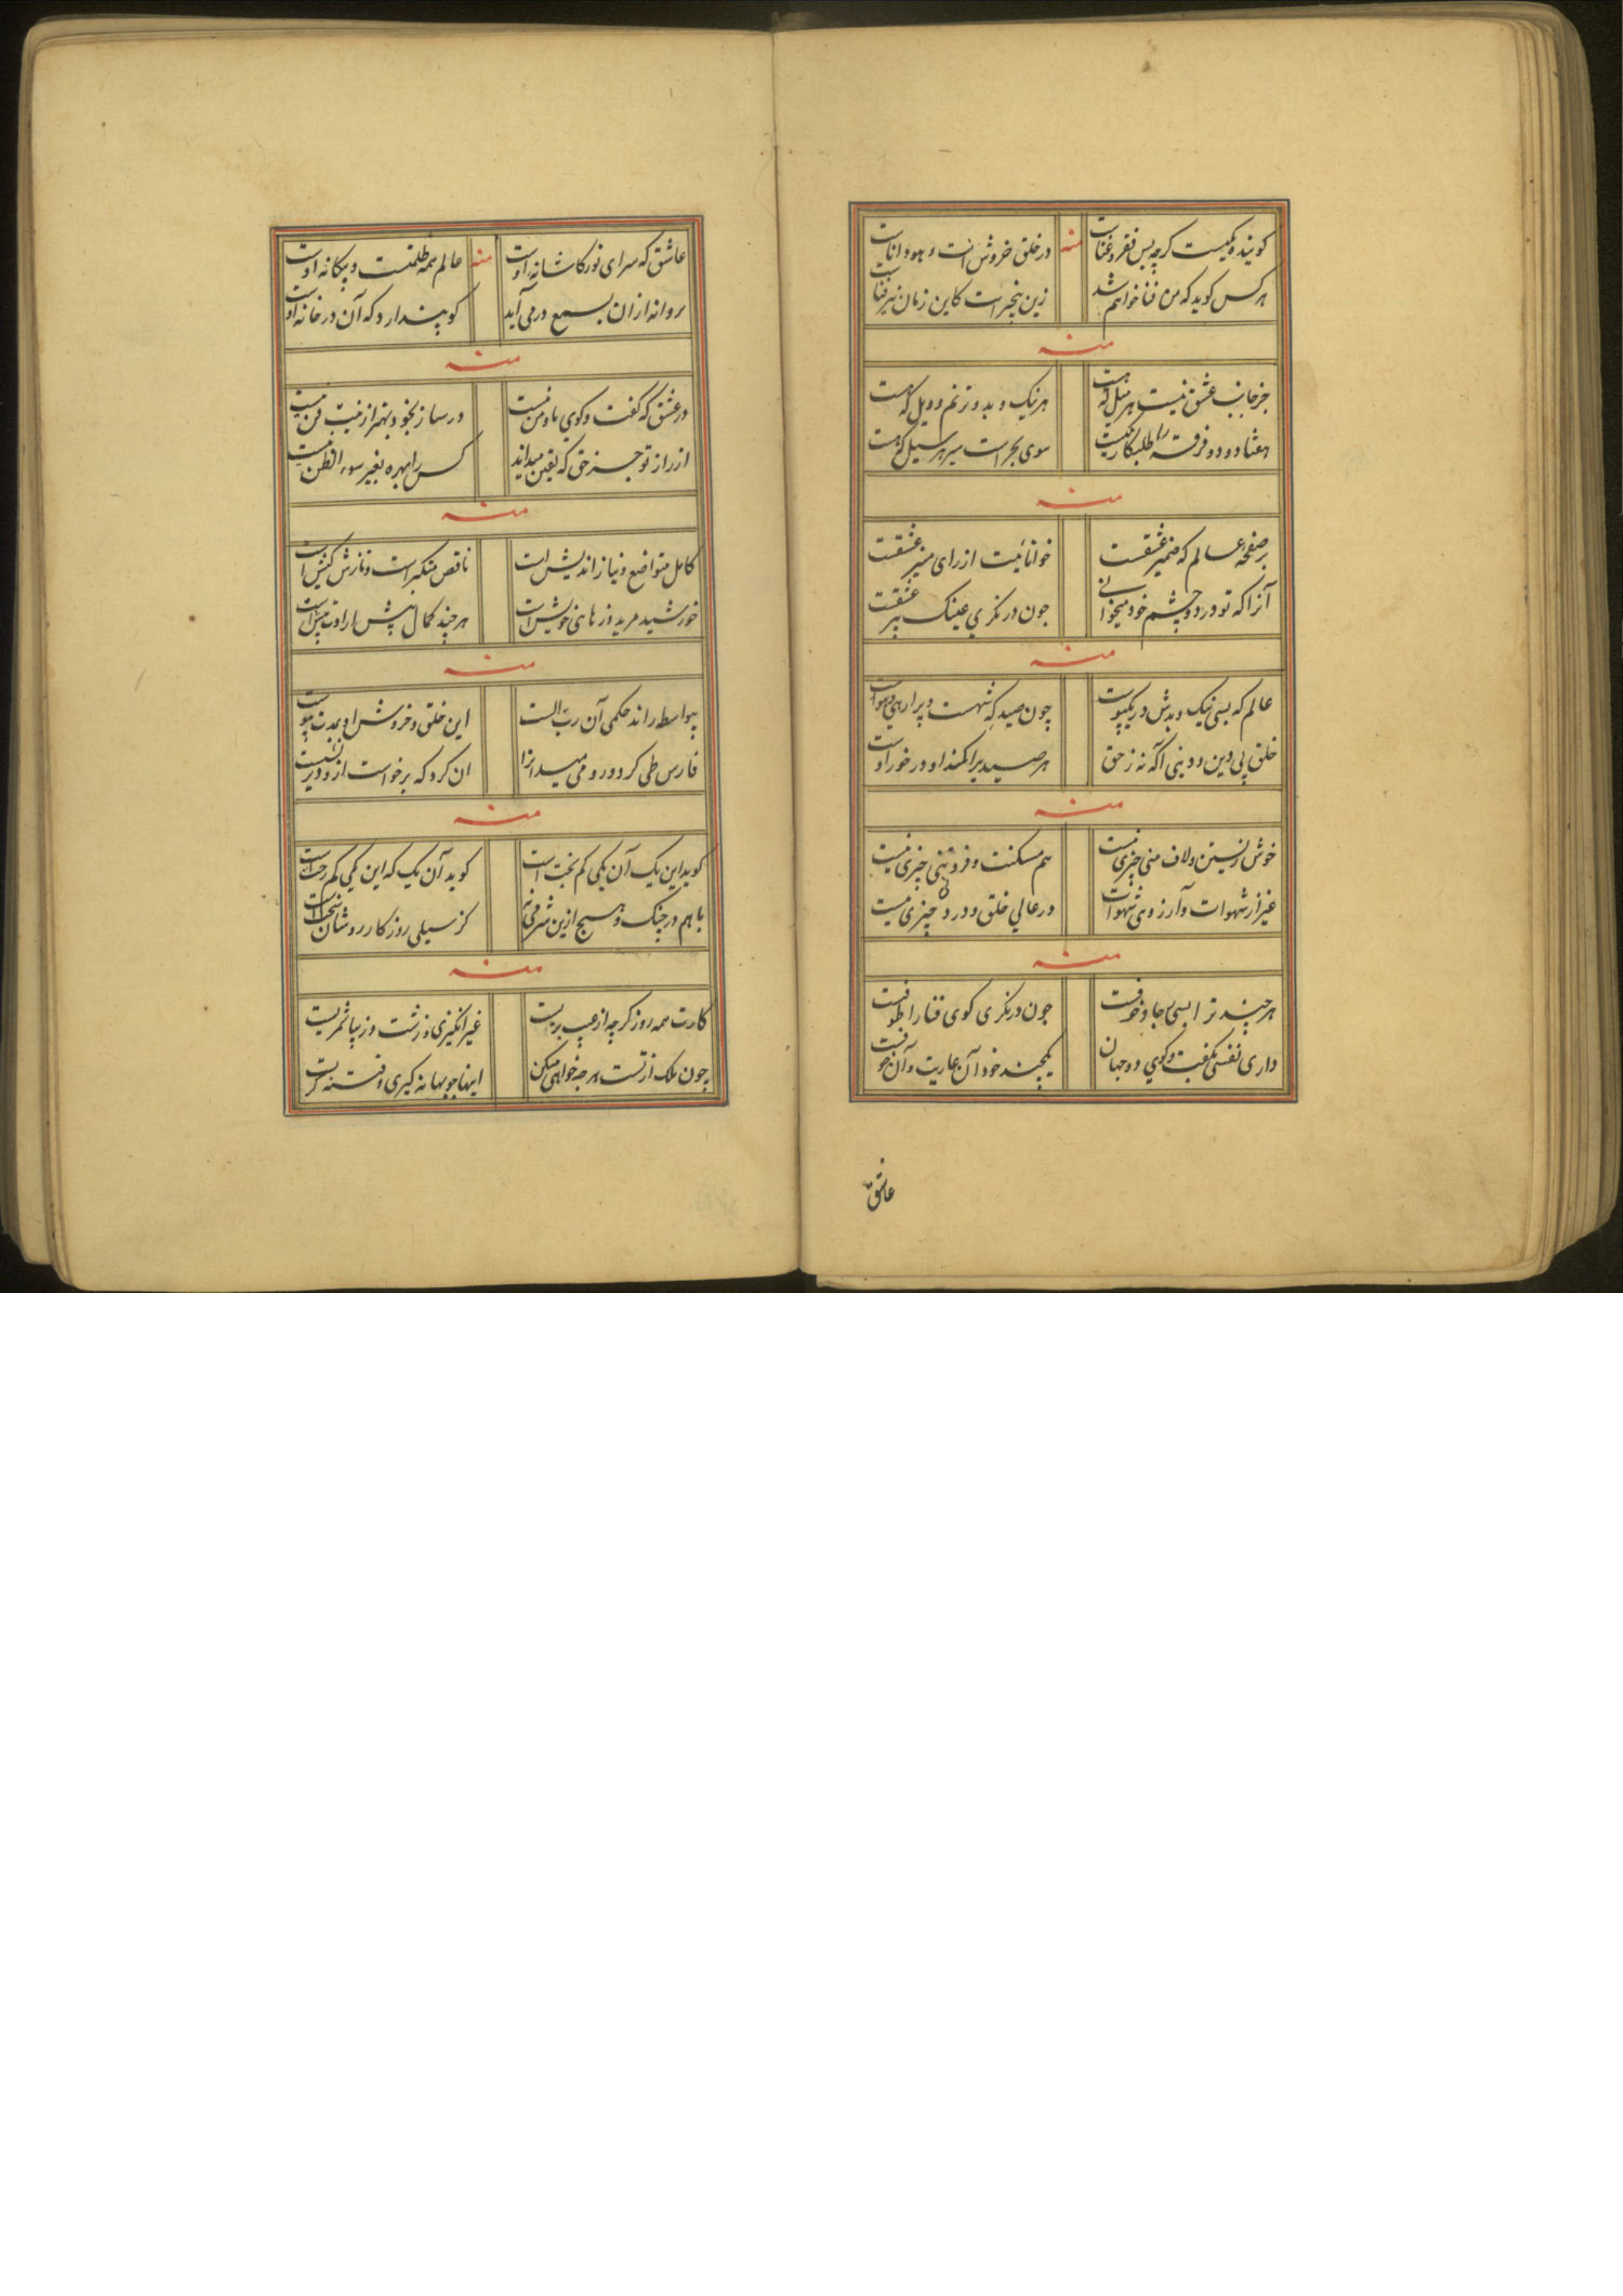 کویند ویکیست کرچه بس فقر و غناست منه در خلق خروش انت و هو و اناست
هر کس کوید که من فنا خواهم شد زین بیخبر است کاین زمان نیز فناست
منه
جز جانب عشق نیست هر میل که هست هر نیک و بد و ترنم و ویل که هست
هفتاد و دو فرقه را طلبکار یکیست سوی بحر است سیر هر سیل که هست
منه
بر صفحهٔ عالم که ضمیر عشقست خوانائیت از رای منیر عشقست
آنرا که تو در دو چشم خود میخوانی چون در نکری عینک پیر عشقست
منه
عالم که بسی نیک و بدش در تک و پوست چون صید که شهست و پر از هی و هوست
خلق پی دین و دینی آکه نه ز حق هر صید برا کمند او در خور اوست
منه
خوش زیستن و لاف منی چیزی نیست هم مسکنت و فروتنی چیزی نیست
غیر از شهوات و آرزوی شهوات در عالی خلق و در دنی چیزی نیست
منه
هر چند ترا بسی جا و خوفست چون در نکری کوی فنا را طوفست
داری نفسی بکفت و کوی دو جهان یکچند خود آن عاریت و آن
عاشق
عاشق که سرای نور کاشانهٔ اوست منه عالم همه ظلمتست و بیکانهٔ اوست
پروانه از ان بسمع در می آید کو پندارد که آن در خانهٔ اوست
منه
در عشق که کفت و کوی ما و من نیست در ساز بخود و بهتر از نیت فن نیست
از راز تو جز حق که یقین میداند کس را بهره بغیر سوء الظن نیست
منه
کامل متواضع و نیاز اندیش است ناقص متکبر است و نازش کیش است
خورشید مرید و زهای خویش است هر چند کمال بیش ارادت بیش است
منه
بیواسطه راند حکمی آن رب الست این خلق و خروش او بمدت پیوست
فارس طی کرد و رو می میدانرا ان کرد که برخواست ازو دیر نشست
منه
کوید این یک آن یکی کم بخت است کوید آن یک که این یکی کم رخت است
با هم در جنک و هیچ ازین شرم نی کز سیلی روزکار رو شان سخت است
منه
کارت همه روز کرچه از عیب بریست غیر انکیزی و زشت و زیبا ثمریست
چون ملک از تست هر چه خواهی میکن اینها چو بهانه کیری و فتنه کریست